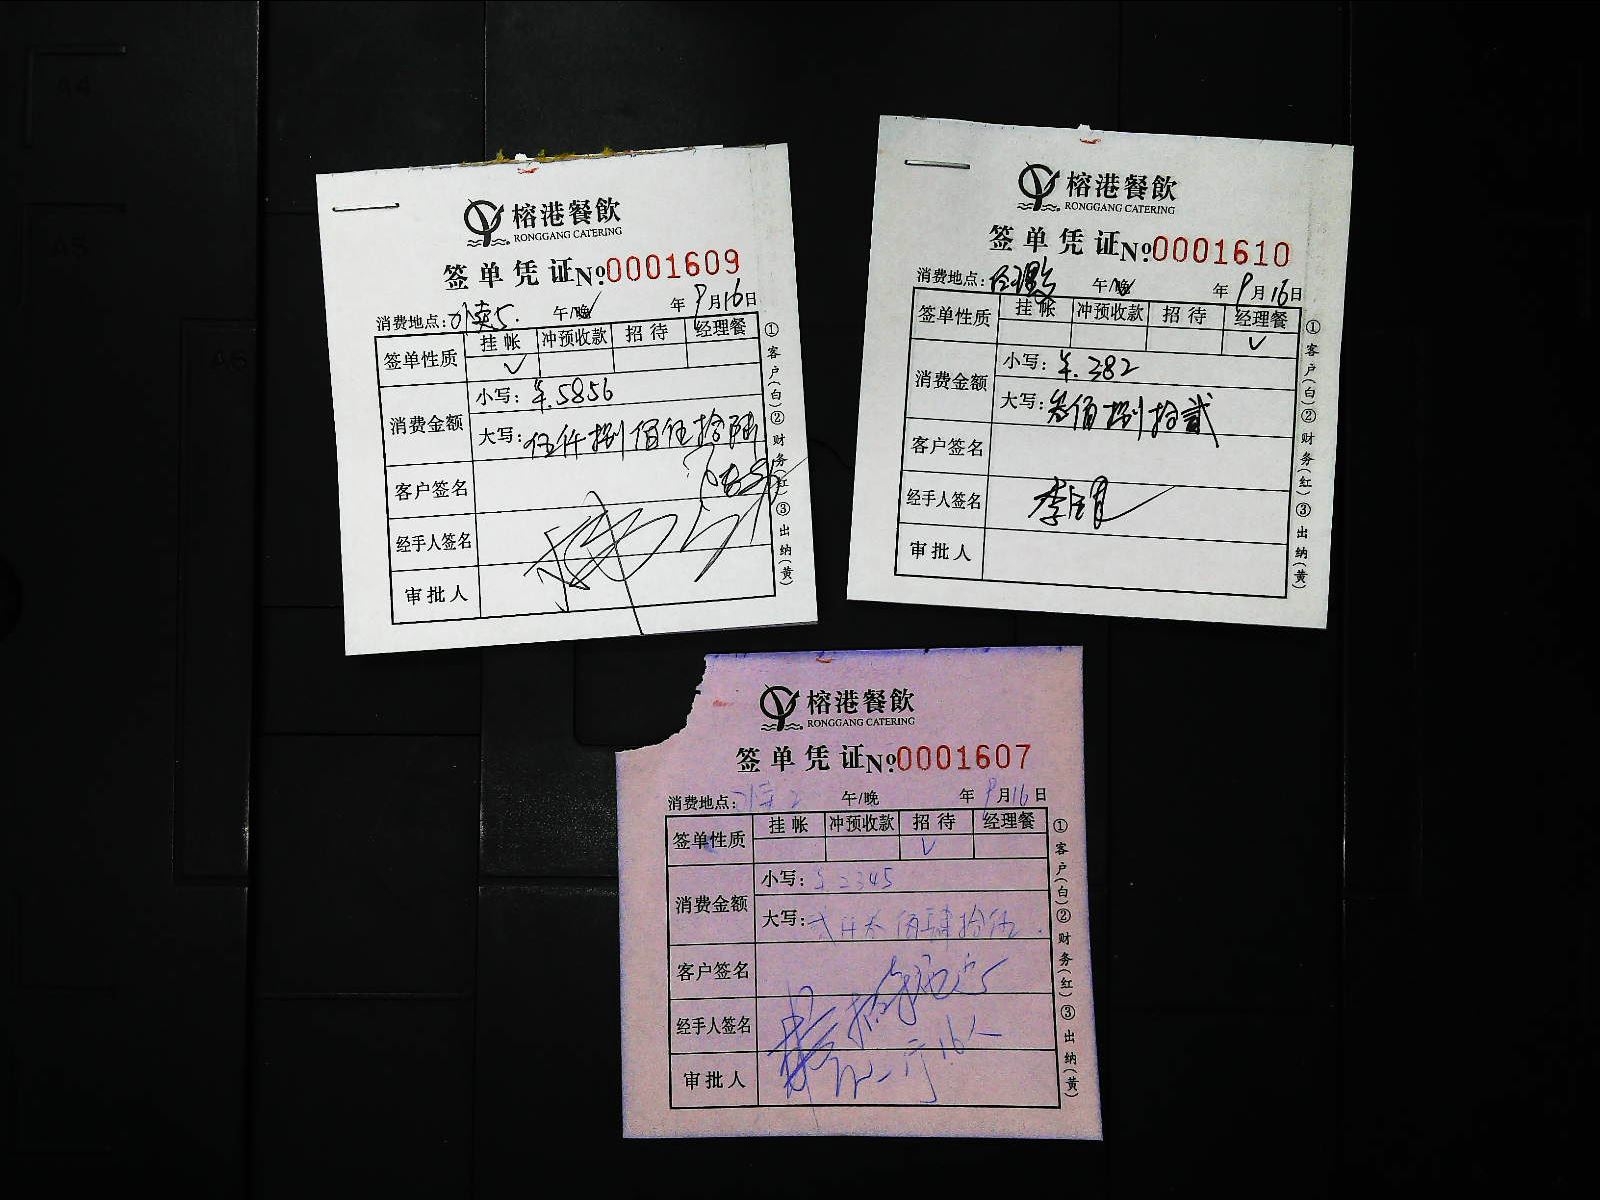 榕港餐飲
RONGGANG CATERING
签单凭证№0001609
消费地点:外卖5. 午/晚 年9月16日
签单性质 挂帐 冲预收款 招待 经理餐
✓
消费金额 小写:¥.5856
大写:伍仟捌佰伍拾陆
客户签名
经手人签名
审批人
①客户(白)②财务(红)③出纳(黄)
榕港餐飲
RONGGANG CATERING
签单凭证№0001610
消费地点:经理餐 午/晚 年9月16日
签单性质 挂帐 冲预收款 招待 经理餐
✓
消费金额 小写:¥.382
大写:叁佰捌拾贰
客户签名
经手人签名
审批人
①客户(白)②财务(红)③出纳(黄)
榕港餐飲
RONGGANG CATERING
签单凭证№0001607
消费地点:外卖2 午/晚 年9月16日
签单性质 挂帐 冲预收款 招待 经理餐
✓
消费金额 小写:¥.2345
大写:贰仟叁佰肆拾伍.
客户签名
经手人签名
16人
审批人
①客户(白)②财务(红)③出纳(黄)
A4
A5
A6